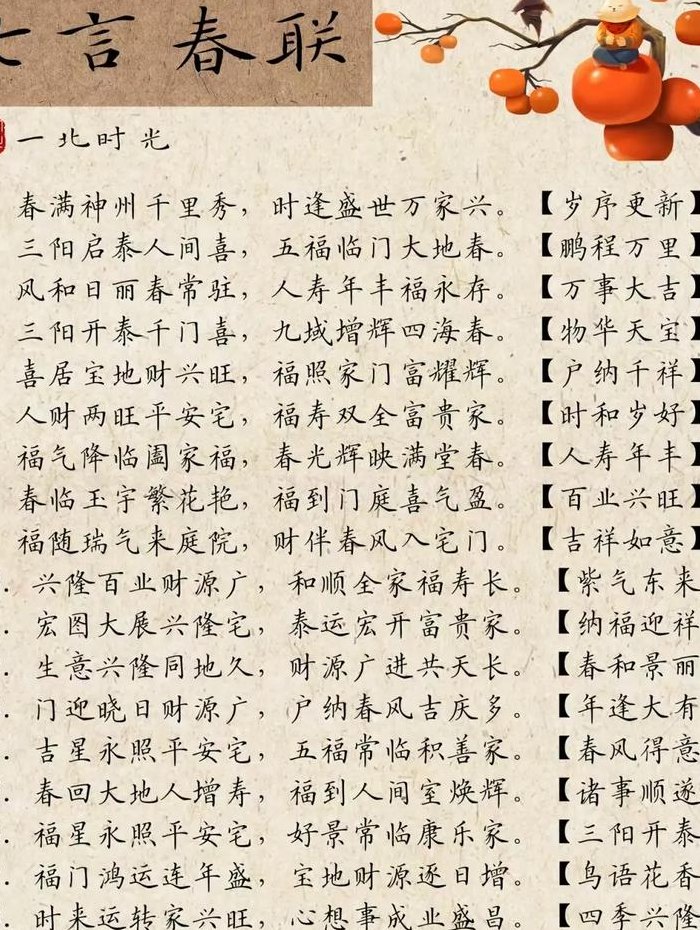 言春联
一北时光
春满神州千里秀，时逢盛世万家兴。【岁序更新】
三阳启泰人间喜，五福临门大地春。【鹏程万里】
风和日丽春常驻，人寿年丰福永存。【万事大吉】
三阳开泰千门喜，九域增辉四海春。【物华天宝】
喜居宝地财兴旺，福照家门富耀辉。【户纳千祥】
人财两旺平安宅，福寿双全富贵家。【时和岁好】
福气降临阖家福，春光辉映满堂春。【人寿年丰】
春临玉宇繁花艳，福到门庭喜气盈。【百业兴旺】
福随瑞气来庭院，财伴春风入宅门。【吉祥如意】
. 兴隆百业财源广，和顺全家福寿长。【紫气东来
. 宏图大展兴隆宅，泰运宏开富贵家。【纳福迎祥
. 生意兴隆同地久，财源广进共天长。【春和景丽
. 门迎晓日财源广，户纳春风吉庆多。【年逢大有
. 吉星永照平安宅，五福常临积善家。【春风得意
. 春回大地人增寿，福到人间室焕辉。【诸事顺遂
. 福星永照平安宅，好景常临康乐家。【三阳开泰
. 福门鸿运连年盛，宝地财源逐日增。【鸟语花香
. 时来运转家兴旺，心想事成业盛昌。【四季兴隆